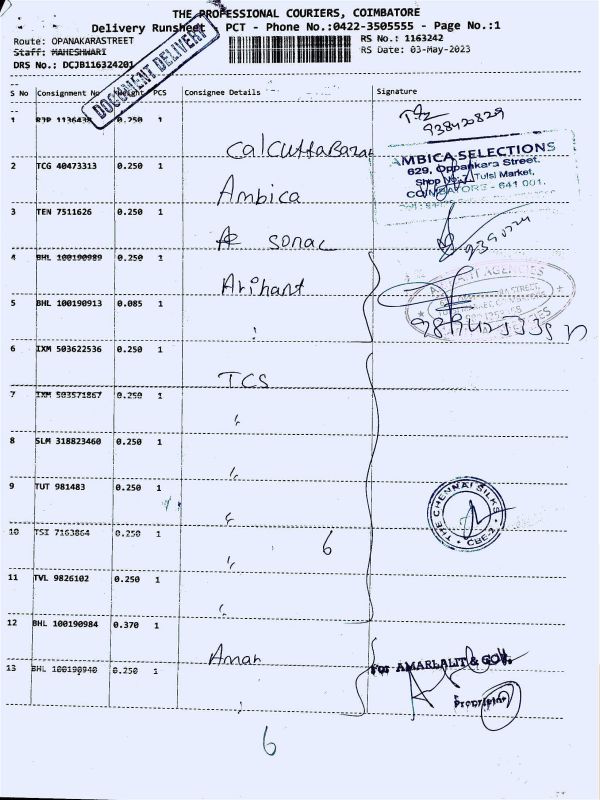 THE PROFESSIONAL COURIERS, COIMBATORE
Delivery Runsheet PCT - Phone No.:0422-3505555 - Page No.:1
Route: OPANAKARASTREET
RS No.: 1163242
Staff: MAHESHWARI
RS Date: 03-May-2023
DRS No.: DCJB116324201
DOCUMENT DELIVERY
S No Consignment No Weight PCS Consignee Details Signature
1 0.250 1
938420829
CalcuttaBazar
AMBICA SELECTIONS
629, Oppankara Street,
Tulsi Market,
COIMBATORE - 641 001.
2 TCG 40473313 0.250 1
Ambica
3 TEN 7511626 0.250 1
sonac
4 BHL 100190989 0.250 1
Arihant
AGENCIES
5 BHL 100190913 0.085 1
6 IXM 503622536 0.250 1
TCS
7 IXM 503571867 0.250 1
8 SLM 318823460 0.250 1
9 TUT 981483 0.250 1
THE CHENNAI SILKS
CBE-2
10 TSI 7163864 0.250 1
6
11 TVL 9826102 0.250 1
12 BHL 100190984 0.370 1
Aman
For AMARLALIT & CO.
13 BHL 100190940 0.250 1
Proprietor
6